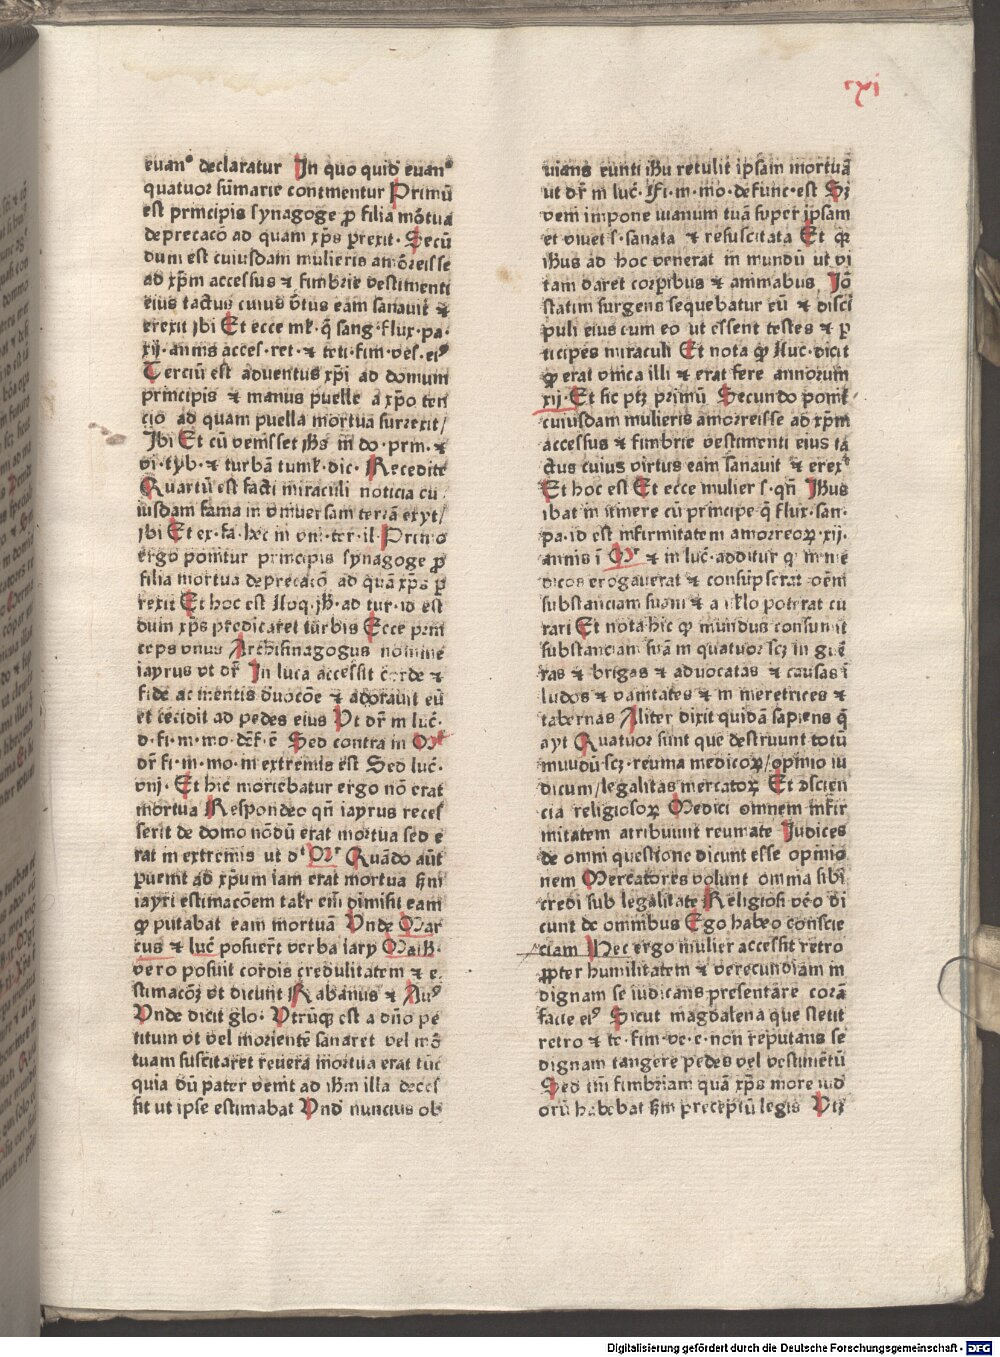 rxi
euanᵒ declaratur In quo quid̄ euanᵒ
quatuor sūmarie continentur Primū
est principis synagoge ꝓ filia mōtua
deprecacō ad quam xp̄s ꝑrexit · Secū
dum est cuiusdam mulieris amōreisse
ad xp̄m accessus ⁊ fimbrie vestimenti
eius tactus cuius v̄tus eam sanauit ⁊
erexit ibi Et ecce mĺ · q̄ sang · flux · pa ·
xij · annis acces · ret · ⁊ teti · fim · ves · eiꝰ
Terciū est aduentus xp̄i ad domum
principis ⁊ manus puelle a xp̄o ten
cio ad quam puella mortua surrexit /
Ibi Et cū venisset ih̄s in do · prin · ⁊
vi · tyb · ⁊ turbā tumĺ · dic · Recedite
Quartū est facti miraculi noticia cu
iusdam fama in vniuersam terrā exyt /
ibi Et ex · fa · hec in vni · ter · il · Primo
ergo ponitur principis synagoge ꝓ
filia mortua deprecacō ad quā xp̄s ꝑ
rexit Et hoc est Loq · ih̄ · ad tur · id est
dum xp̄s predicaret turbis Ecce prin
ceps vnus Archisinagogus nomine
iayrus vt dr̄ In luca accessit corde ⁊
fide ac mentis deuocōe ⁊ adorauit eū
et cecidit ad pedes eius Vt dr̄ in luc̄ ·
d · fi · m · mo · dēf · ē Sed contra in Mʳ
dr̄ fi · m · mo · in extremis est Sed luc̄ ·
viij · Et hic moriebatur ergo nō erat
mortua Respondeo qn̄ iayrus reces
serit de domo nōdū erat mortua sed e
rat in extremis ut dᵗ Mʳ Quādo aūt
puenit ad xp̄um iam erat mortua s̄m
iayri estimacōem talr̄ em̄ dimisit eam
ꝙ putabat eam mortuā Vnde Mar
cus ⁊ luc̄ posuert̄ verba iary Math̄ ·
vero posuit cordis credulitatem ⁊ e ·
stimacōꝫ vt dicunt Rabanus ⁊ Auꝰ
Vnde dicit glo · Vtrūqꝫ est a dn̄o pe
titum vt vel morientē sanaret vel mō
tuam suscitaret reuera mortua erat tūc
quia dū pater venit ad ih̄m illa deces
sit ut ipse estimabat Vnd̄ nuncius ob
uians eunti ih̄u retulit ipsam mortuā
ut dr̄ in luc̄ · Fi · m · mo · defunc · est Sꝫ
veni impone manum tuā super ipsam
et viuet s · sanata ⁊ resuscitata Et qꝛ
ih̄us ad hoc venerat in mundū ut vi
tam daret corꝑibus ⁊ animabus Iō
statim surgens sequebatur eū ⁊ disci
puli eius cum eo ut essent testes ⁊ ꝑ
ticipes miraculi Et nota ꝙ Luc · dicit
ꝙ erat vnica illi ⁊ erat fere annorum
xij · Et sic ptꝫ primū Secundo ponit̄
cuiusdam mulieris amorreisse ad xp̄m
accessus ⁊ fimbrie vestimenti eius ta
ctus cuius virtus eam sanauit ⁊ erexᵗ
Et hoc est Et ecce mulier s · qn̄ Ih̄us
ibat in itinere cū principe q̄ flux · san ·
pa · id est infirmitatem amorreoꝝ · xij ·
annis ī Mʳ ⁊ in luc̄ · additur q in me
dicos erogauerat ⁊ consūpserat oēm
substanciam suam ⁊ a nullo poterat cu
rari Et nota hic ꝙ mundus consumit
substanciam suā in quatuor scꝫ in gue
ras ⁊ brigas ⁊ aduocatas ⁊ causas ī
ludos ⁊ vanitates ⁊ in meretrices ⁊
tabernas Aliter dixit quidā sapiens q̄
ayt Quatuor sunt que destruunt totū
mundū scꝫ · reuma medicoꝝ / opinio iu
dicum / legalitas mercatoꝝ Et ɔscien
cia religiosoꝝ Medici omnem infir
mitatem atribuunt reumate Iudices
de omni questione dicunt esse opinio
nem Mercatores volunt omnia sibi
credi sub legalitate Religiosi vēo di
cunt de omnibus Ego habeo conscie
ciam Hec ergo mulier accessit retro
ꝓpter humilitatem ⁊ verecundiam in
dignam se iudicans presentare corā
facie eiꝰ Sicut magdalena que stetit
retro ⁊ te · fim · ve · e · non reputans se
dignam tangere pedes vel vestimētū
Sed tm̄ fimbriam quā xp̄s more iud
orū habebat s̄m preceptū legis Vtꝫ
Digitalisierung gefördert durch die Deutsche Forschungsgemeinschaft - DFG